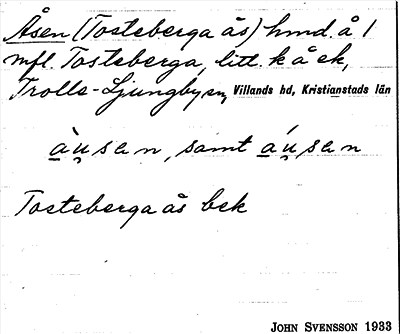 Åsen (Tosteberga ås) hmd. å 1
mfl. Tosteberga, litt. k å ek,
Trolle-Ljungby sn, Villands hd, Kristianstads län
àu̯sen, samt áu̯sen
Tosteberga ås bek
JOHN SVENSSON 1933